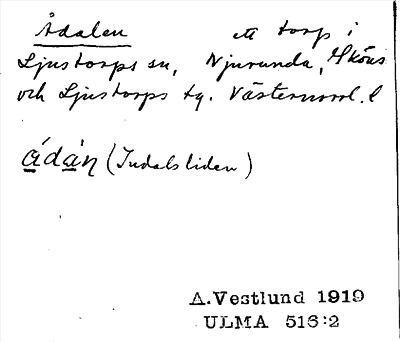 Ådalen ett torp i
Ljustorps sn, Njurunda, Sköns
och Ljustorps tg. Västernorrl. l
ádán (Indalsliden)
A.Vestlund 1919
ULMA 516:2